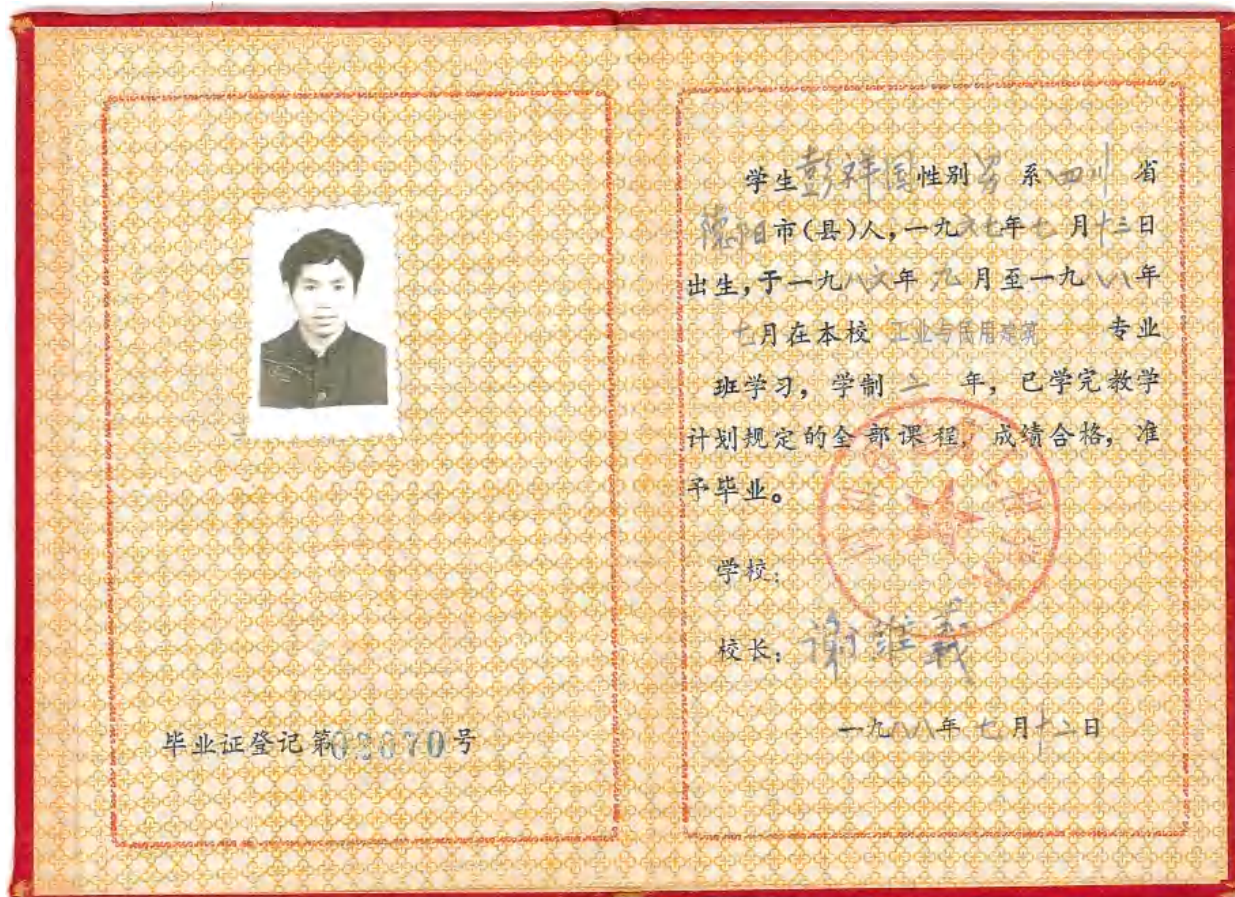 毕业证登记第02670号
学生彭祥国性别男系四川省
德阳市(县)人,一九六七年七月十三日
出生,于一九八六年九月至一九八八年
七月在本校工业与民用建筑专业
班学习,学制二年,已学完教学
计划规定的全部课程,成绩合格,准
予毕业。
学校:
校长:谢维义
一九八八年七月十二日